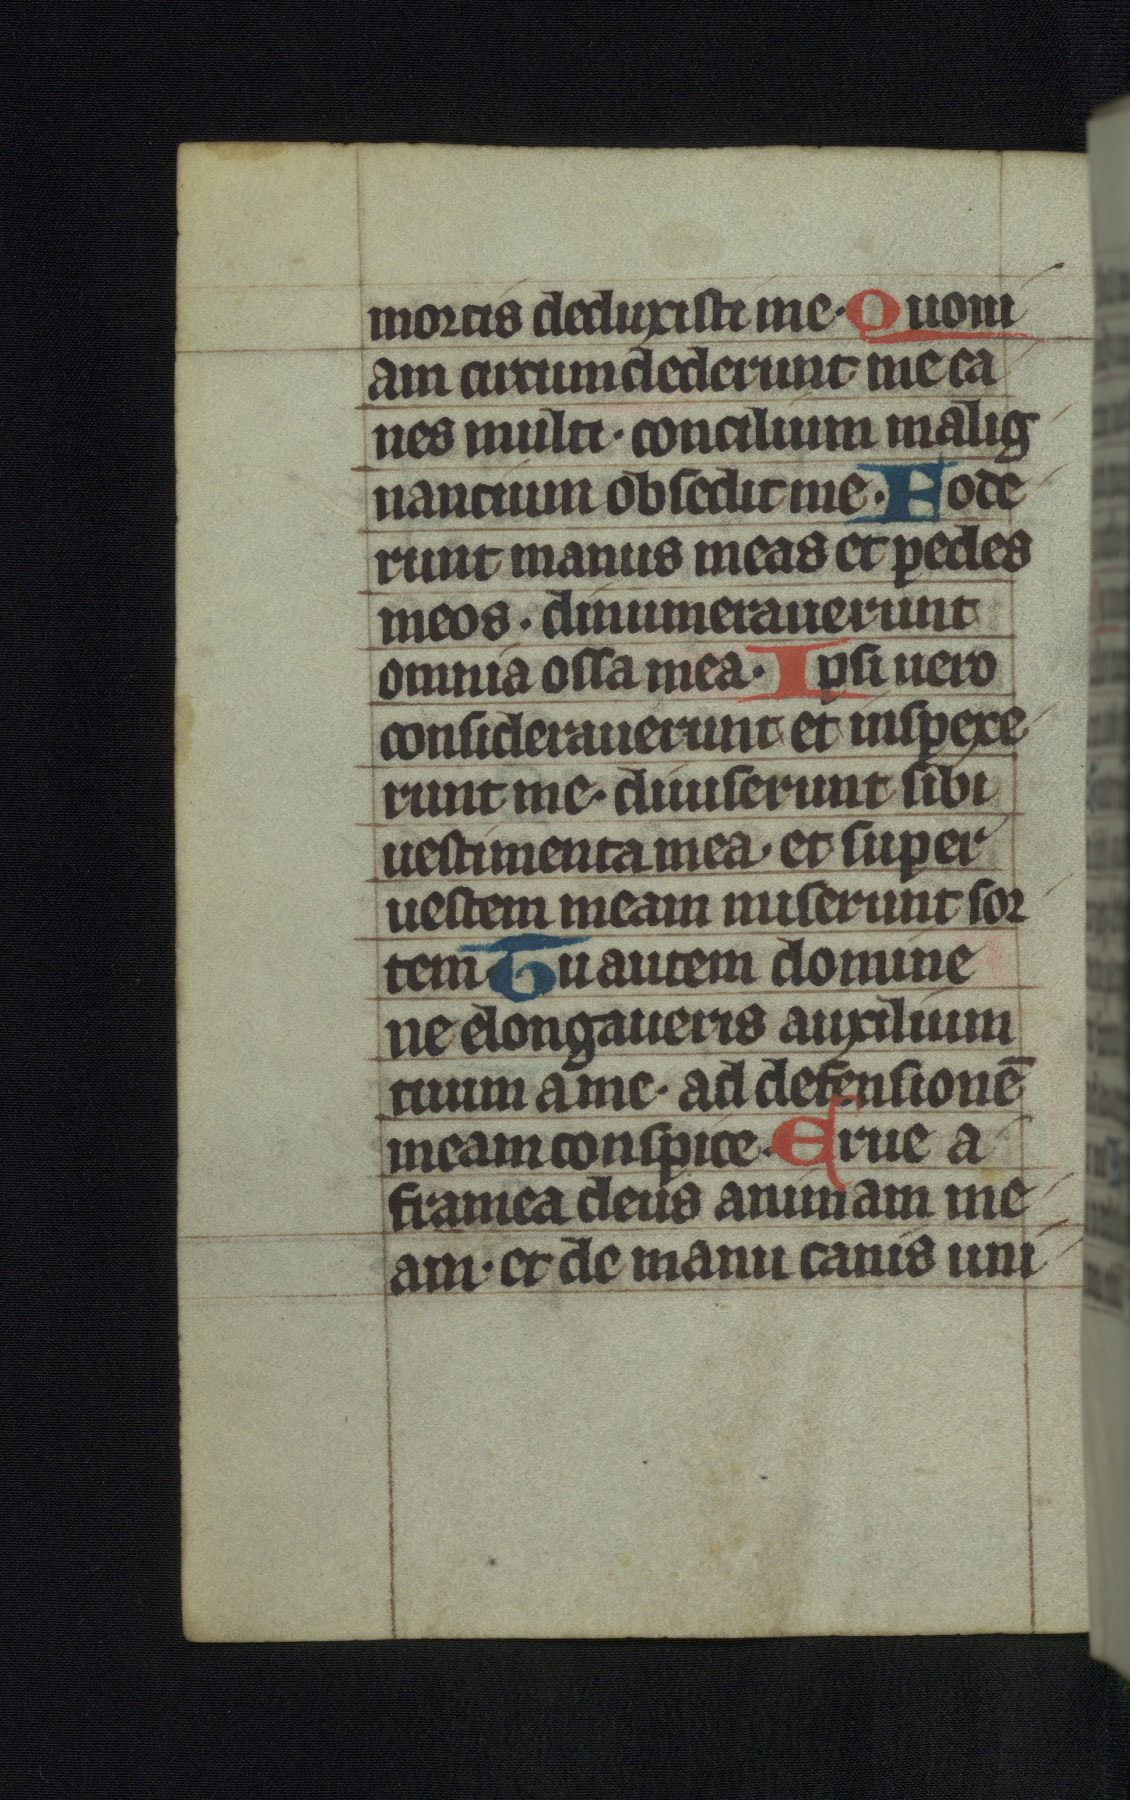 mortis deduxisti me· Quoni
am circumdederunt me ca
nes multi· concilium malig
nantium obsedit me· Fode
runt manus meas et pedes
meos· dinumerauerunt
omnia ossa mea· Ipsi uero
considerauerunt et inspexe
runt me· diuiserunt sibi
uestimenta mea· et super
uestem meam miserunt sor
tem Tu autem domine
ne elongaueris auxilium
tuum a me· ad defensionē
meam conspice· Erue a
framea deus animam me
am· et de manu canis uni